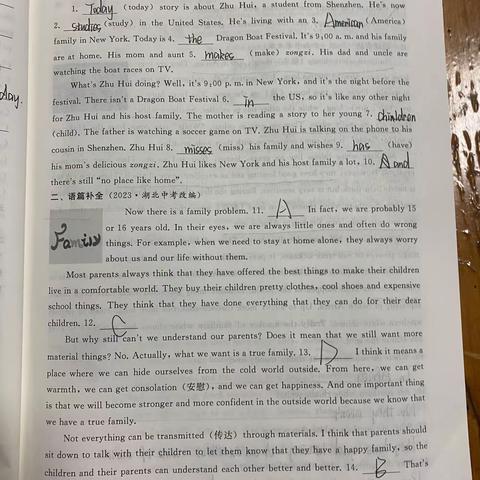 1. Today (today) story is about Zhu Hui, a student from Shenzhen. He's now
2. studies (study) in the United States. He's living with an 3. American (America)
family in New York. Today is 4. the Dragon Boat Festival. It's 9:00 a. m. and his family
are at home. His mom and aunt 5. makes (make) zongzi. His dad and uncle are
watching the boat races on TV.
What's Zhu Hui doing? Well, it's 9:00 p. m. in New York, and it's the night before the
festival. There isn't a Dragon Boat Festival 6. in the US, so it's like any other night
for Zhu Hui and his host family. The mother is reading a story to her young 7. chinldren
(child). The father is watching a soccer game on TV. Zhu Hui is talking on the phone to his
cousin in Shenzhen. Zhu Hui 8. misses (miss) his family and wishes 9. has (have)
his mom's delicious zongzi. Zhu Hui likes New York and his host family a lot, 10. and
there's still "no place like home".
二、语篇补全(2023·湖北中考改编)
Family
Now there is a family problem. 11. A In fact, we are probably 15
or 16 years old. In their eyes, we are always little ones and often do wrong
things. For example, when we need to stay at home alone, they always worry
about us and our life without them.
Most parents always think that they have offered the best things to make their children
live in a comfortable world. They buy their children pretty clothes, cool shoes and expensive
school things. They think that they have done everything that they can do for their dear
children. 12. C
But why still can't we understand our parents? Does it mean that we still want more
material things? No. Actually, what we want is a true family. 13. D I think it means a
place where we can hide ourselves from the cold world outside. From here, we can get
warmth, we can get consolation (安慰), and we can get happiness. And one important thing
is that we will become stronger and more confident in the outside world because we know that
we have a true family.
Not everything can be transmitted (传达) through materials. I think that parents should
sit down to talk with their children to let them know that they have a happy family, so the
children and their parents can understand each other better and better. 14. B That's
day.